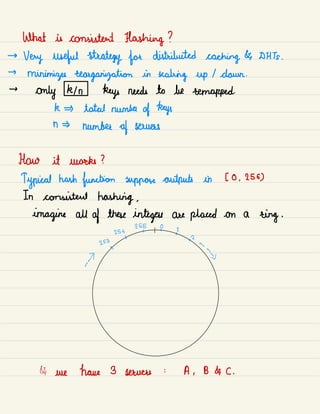 What is consistent Hashing?
→ Very useful strategy for distributed caching & DHTs.
→ minimizes reorganization in scaling up / down.
→ only k/n keys needs to be remapped
k ⇒ total number of keys
n ⇒ number of servers
How it works?
Typical hash function suppose outputs in [0, 256)
In consistent hashing,
imagine all of these integers are placed on a ring.
253 254 255 0 1 2
we have 3 servers : A, B & C.